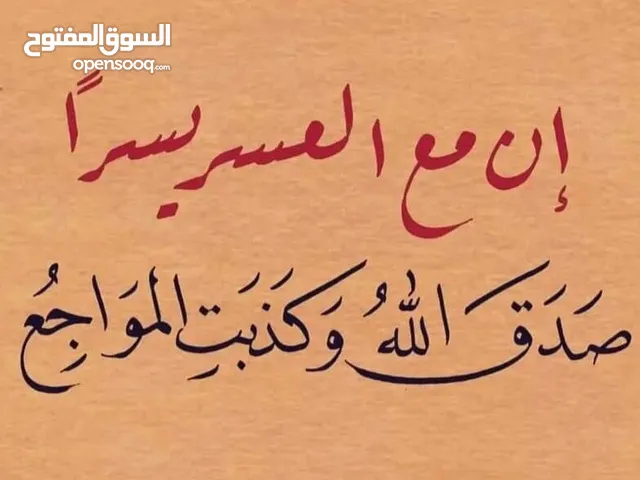 السوق المفتوح
opensooq.com
إن مع العسر يسراً
صَدَقَ اللهُ وَكَذَبَتِ المَوَاجِعُ